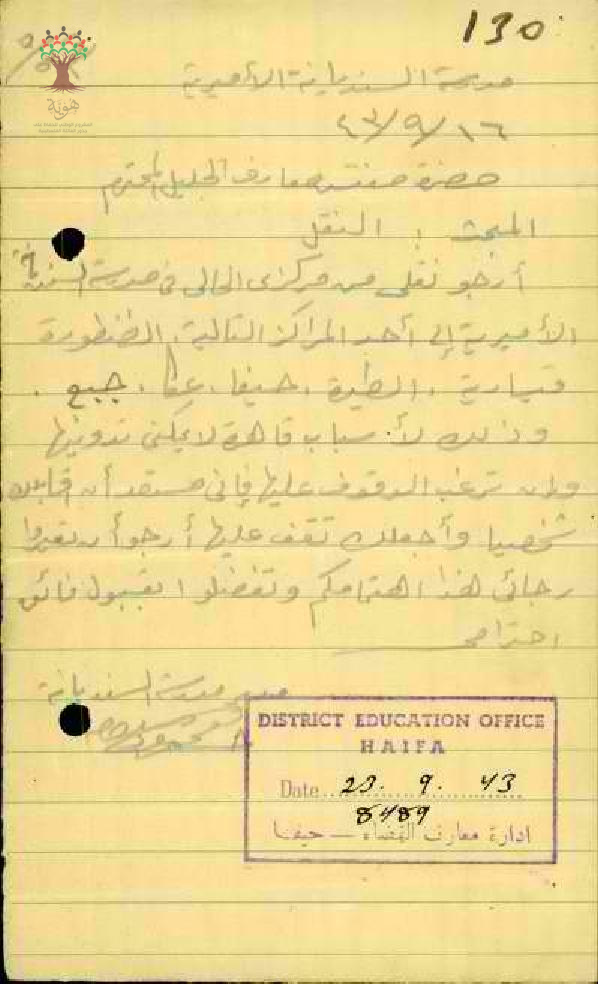 130
هوية
مدرسة السنديانة الأميرية
١٦/٩/٤٣
حضرة مفتش معارف الجليل المحترم
المبحث : النقل
أرجو نقلي من مركزي الحالي في مدرسة السنديانة
الأميرية إلى أحد المراكز التالية. الطنطورة
قيسارية ، الطيرة ، حيفا ، عكا ، جبع .
وذلك لأسباب قاهرة لا يمكنني تدوينها
وإن ترغب الوقوف عليها فإني مستعد أن أقابلك
شخصيا وأجعلك تقف عليها أرجو أن تعيروا
رجائي هذا اهتمامكم وتفضلوا بقبول فائق
احترامي
مدير مدرسة السنديانة
DISTRICT EDUCATION OFFICE
HAIFA
Date 23. 9. 43
8489
ادارة معارف القضاء — حيفا